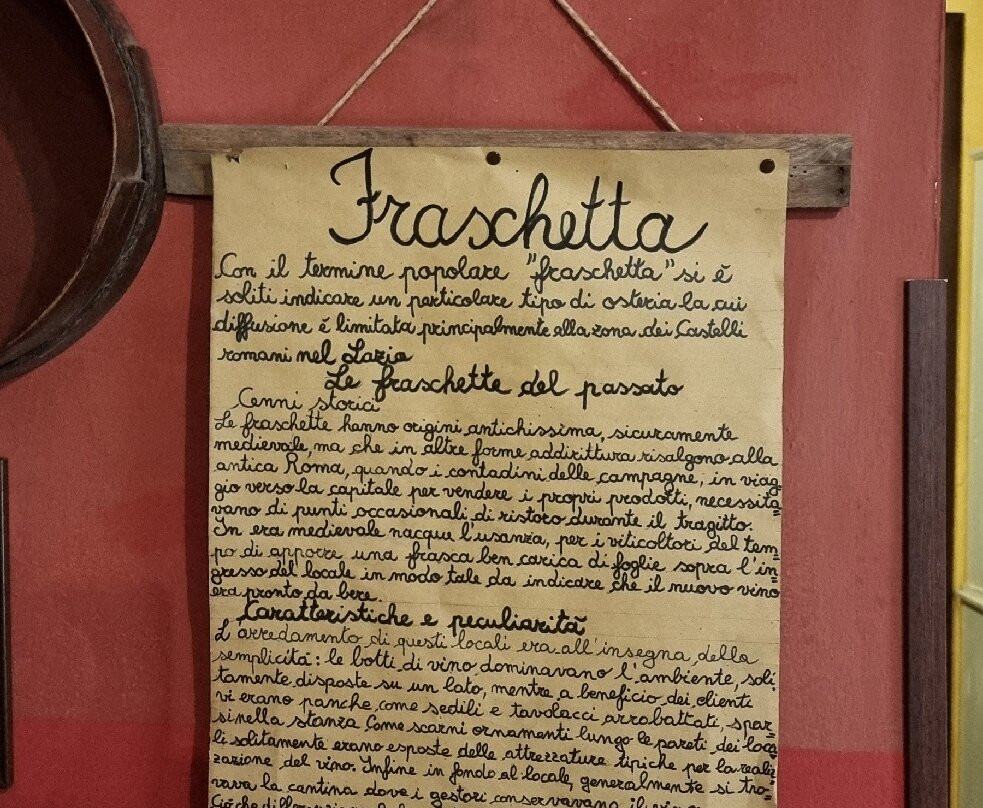 Fraschetta
Con il termine popolare "fraschetta" si è
soliti indicare un particolare tipo di osteria la cui
diffusione è limitata principalmente alla zona dei Castelli
romani nel Lazio
Le fraschette del passato
Cenni storici
Le fraschette hanno origini antichissima, sicuramente
medievale, ma che in altre forme addirittura risalgono alla
antica Roma, quando i contadini delle campagne, in viag
gio verso la capitale per vendere i propri prodotti, necessita
vano di punti occasionali di ristoro durante il tragitto.
In era medievale nacque l'usanza, per i viticoltori del tem
po di apporre una frasca ben carica di foglie sopra l'in
gresso del locale in modo tale da indicare che il nuovo vino
era pronto da bere.
Caratteristiche e peculiarità
L'arredamento di questi locali era all'insegna della
semplicità: le botti di vino dominavano l'ambiente, soli
tamente disposte su un lato, mentre a beneficio dei clienti
vi erano panche come sedili e tavolacci arrabattati, spar
si nella stanza Come scarni ornamenti lungo le pareti dei loca
li solitamente erano esposte delle attrezzature tipiche per la reali
zzazione del vino. Infine in fondo al locale, generalmente si tro
vava la cantina dove i gestori conservavano il